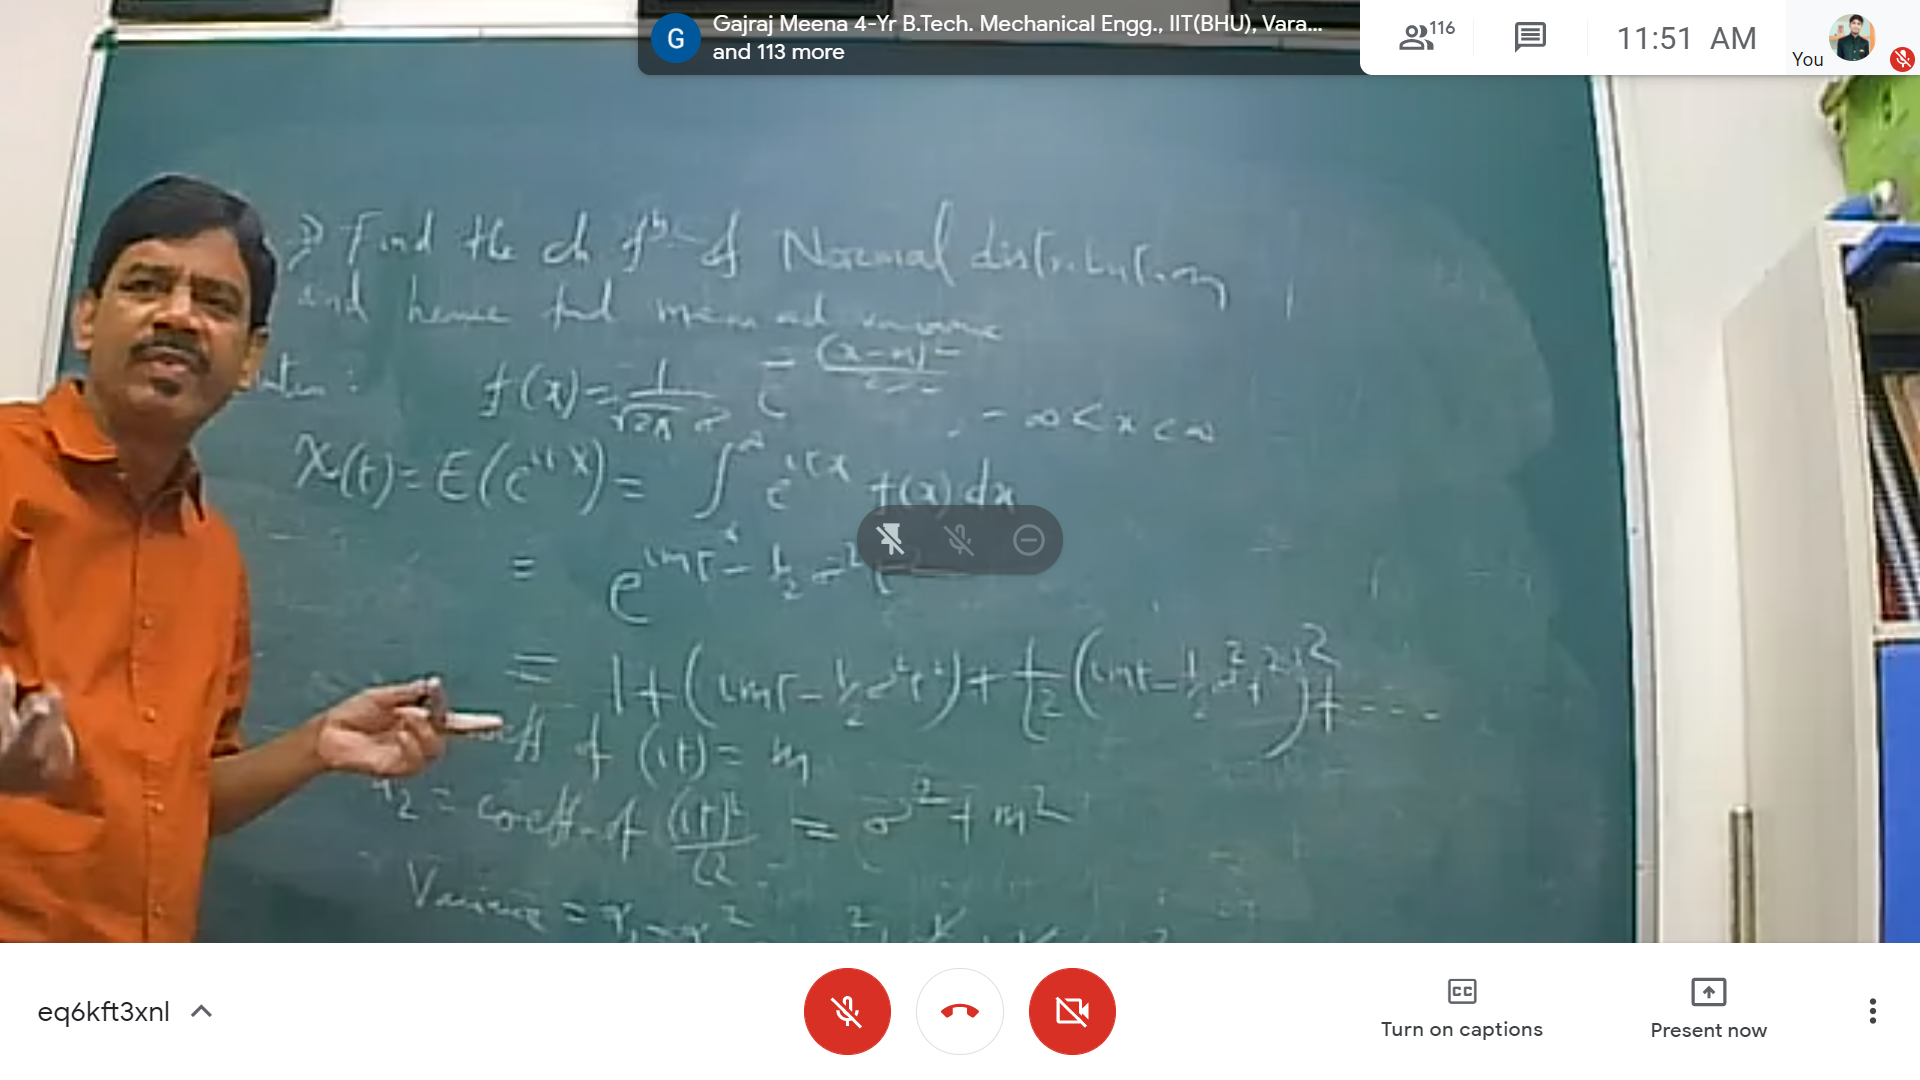 Gajraj Meena 4-Yr B.Tech. Mechanical Engg., IIT(BHU), Vara...
and 113 more
G
116
11:51 AM
You
⇒ Find the ch fⁿ of Normal distribution,
and hence find mean and variance
f(x) = 1/√2π σ e^-(x-m)²/2σ², -∞ < x < ∞
χ(t) = E(e^itX) = ∫ e^itx f(x) dx
= e^imt - 1/2 σ²t²
= 1 + (imt - 1/2 σ²t²) + 1/⌊2 (imt - 1/2 σ²t²)² + ----
coeff of (it) = m
α2 = coeff. of (it)²/⌊2 = σ² + m²
Variance =
eq6kft3xnl
CC
Turn on captions
Present now